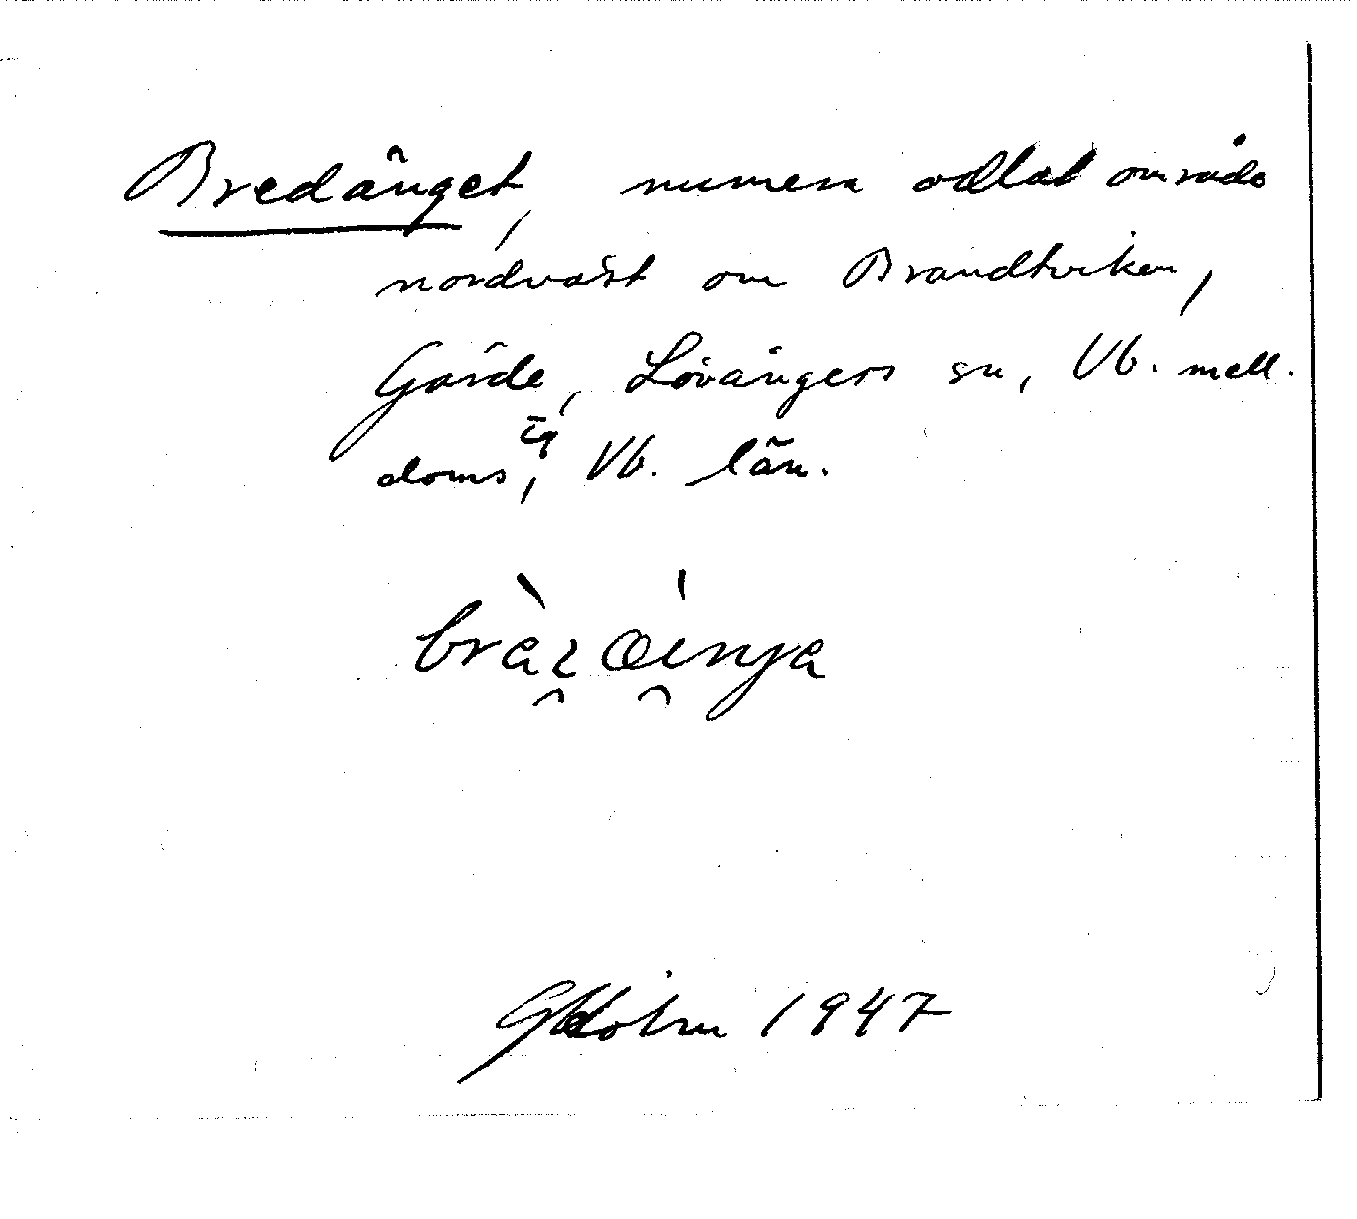 Bredänget, numera odlat område
nordväst om Brandtviken,
Gärde, Lövångers sn, Vb. mell.
doms
tg, Vb. län.
GHolm 1947